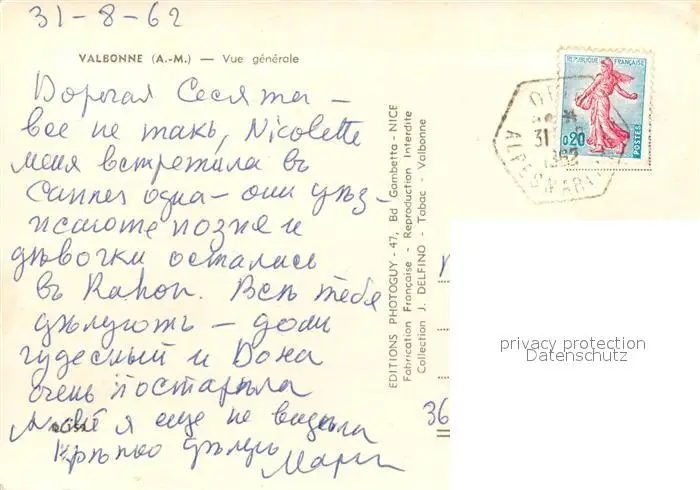 31-8-62
VALBONNE (A.-M.) — Vue générale
Дорогая
все не такъ, Nicolette
меня встретила въ
Cannes одна — они
позже и
дѣвочки остались
въ Всѣ тебя
цѣлуютъ — домъ
чудесный и
очень постарѣла
я еще не видѣла
Крѣпко цѣлую
EDITIONS PHOTOGUY - 47, Bd Gambetta - NICE
Fabrication Française - Reproduction Interdite
Collection J. DELFINO - Tabac - Valbonne
REPUBLIQUE FRANÇAISE
0,20
POSTES
31
1962
ALPES MAR
privacy protection
Datenschutz
36